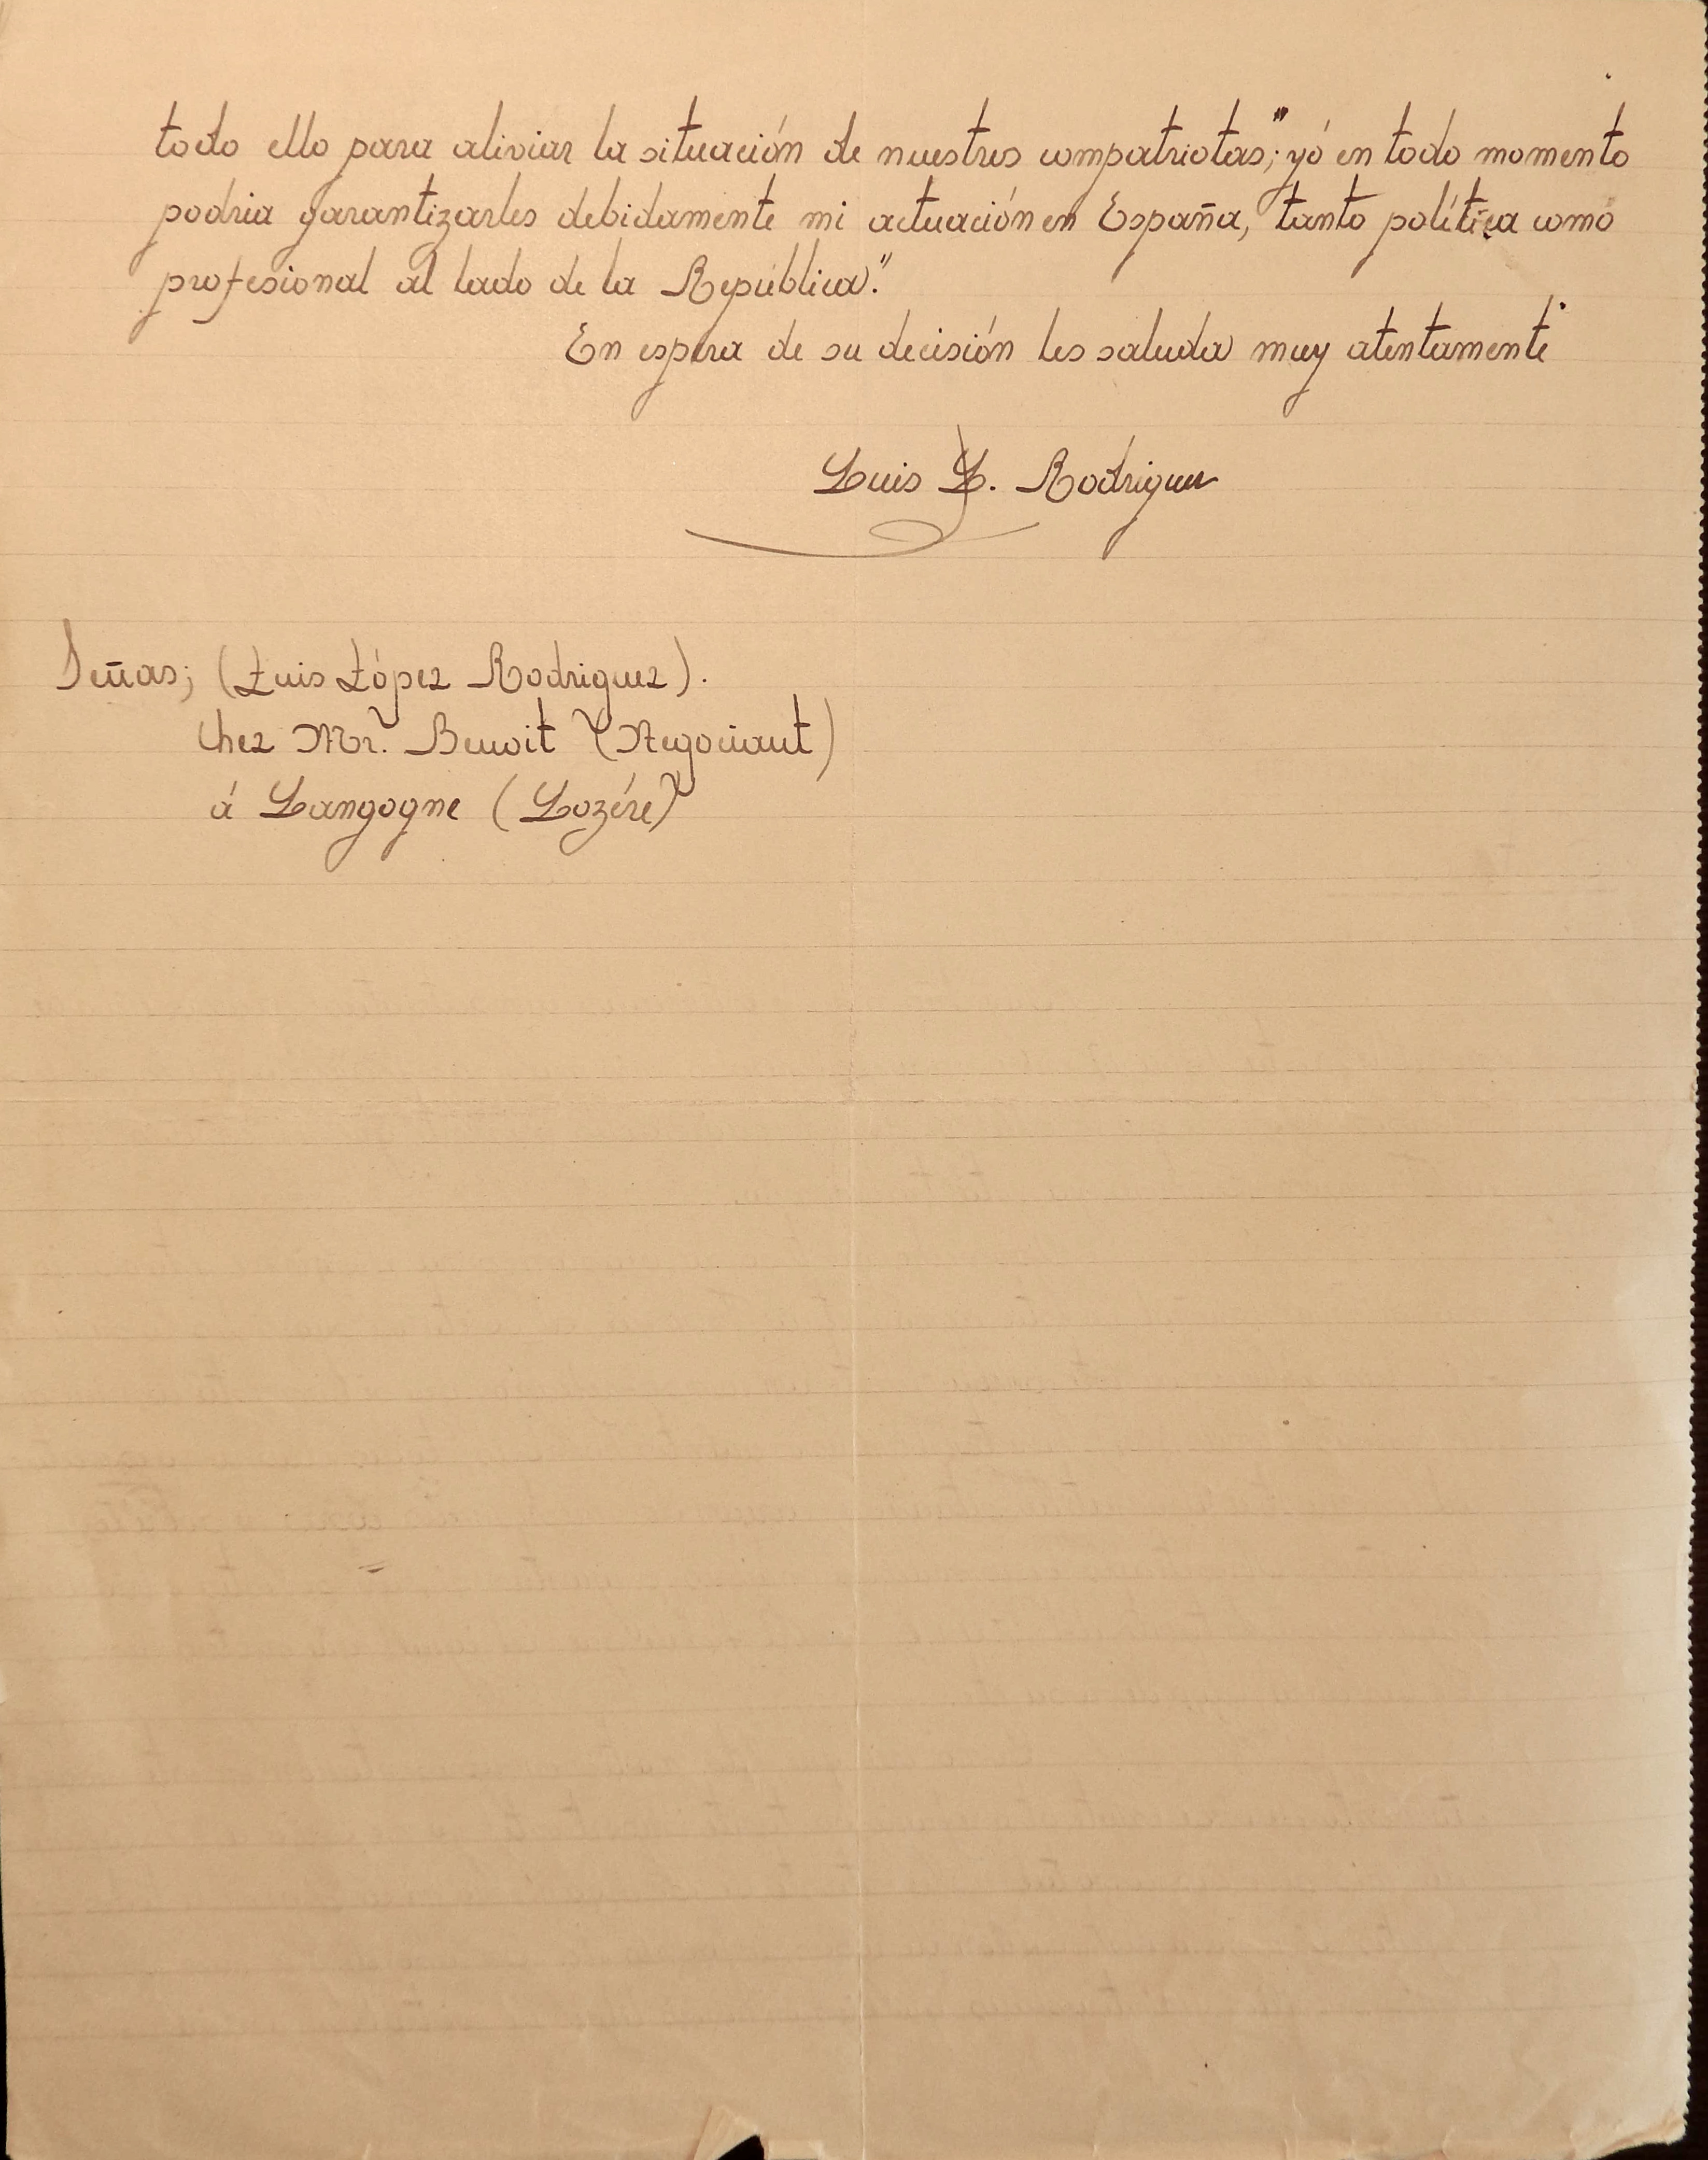 todo ello para aliviar la situación de nuestros compatriotas;" yó en todo momento
podria garantizarles debidamente mi actuación en España, tanto política como
profesional al lado de la República."
En espera de su decisión les saluda muy atentamente
Luis L. Rodriguez
Señas; (Luis López Rodriguez).
Chez Mr. Benoit (Negociant)
á Langogne (Lozére)